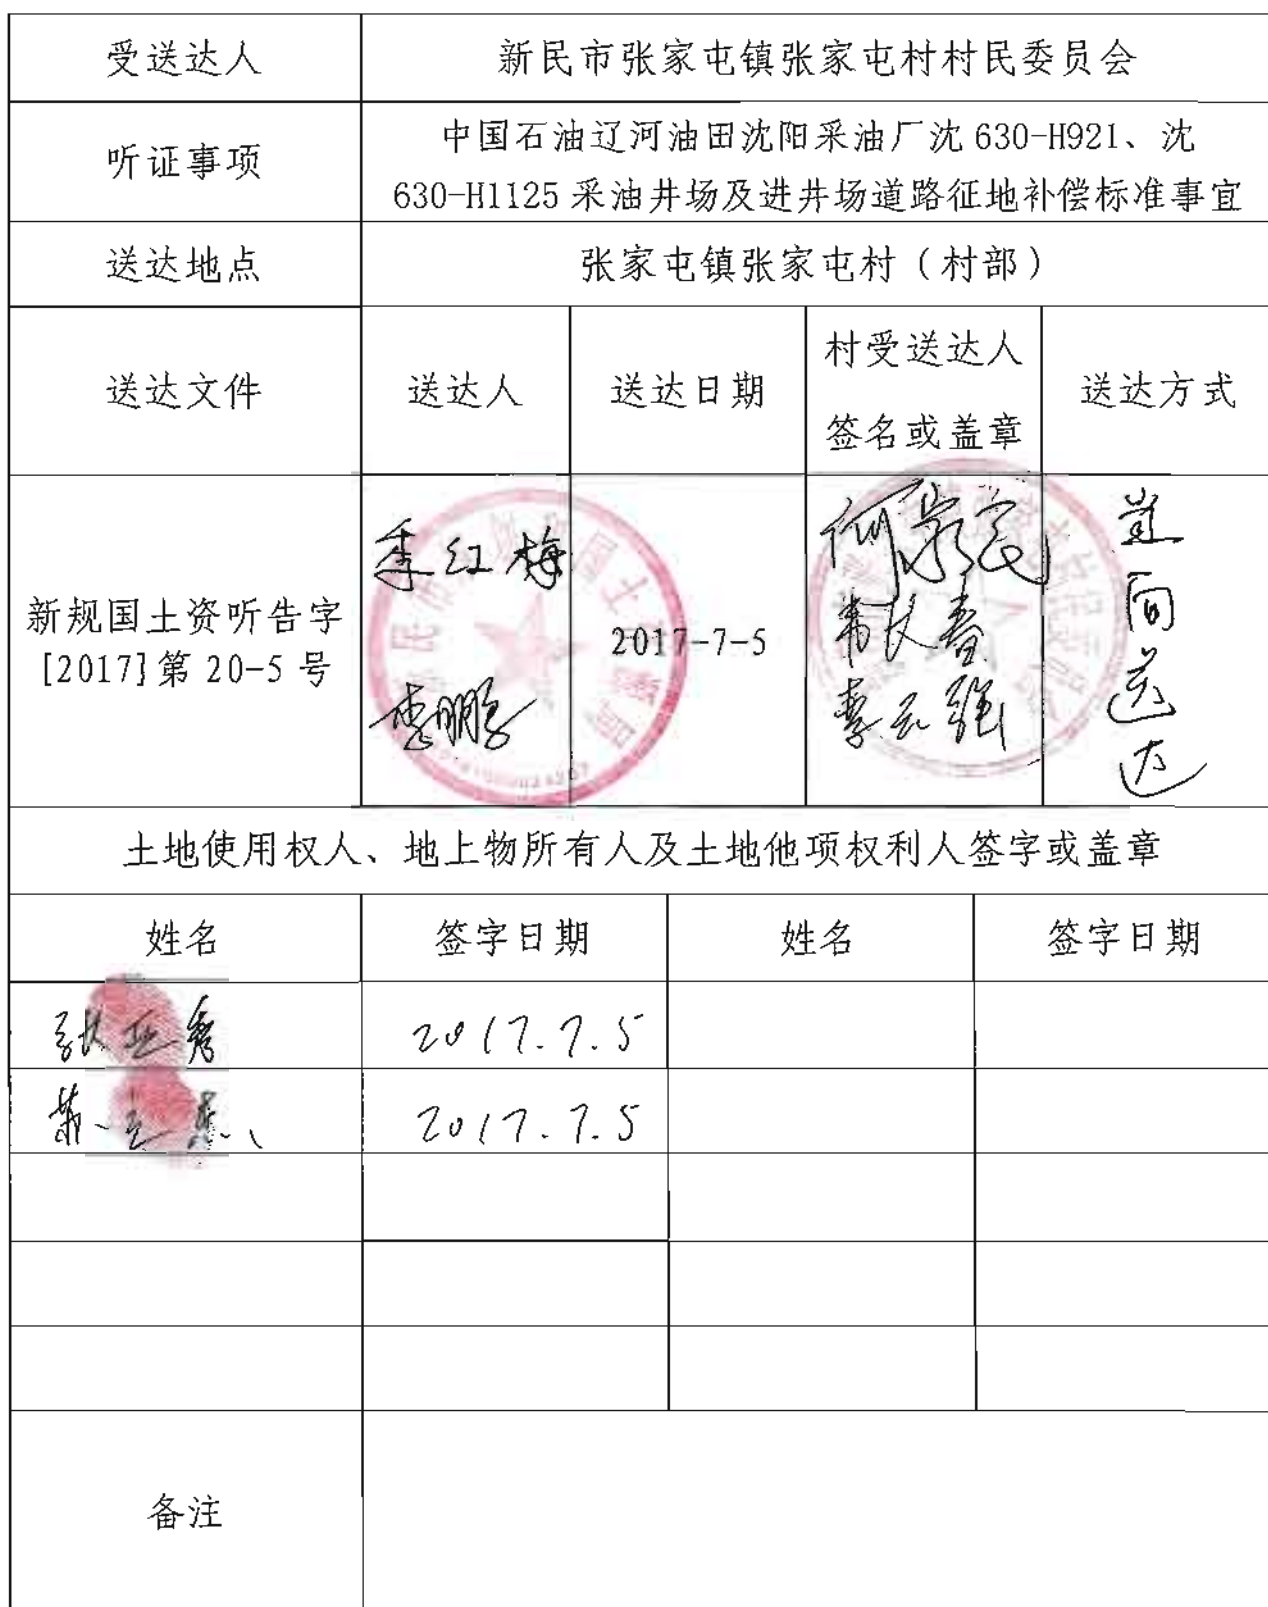 受送达人
新民市张家屯镇张家屯村村民委员会
听证事项
中国石油辽河油田沈阳采油厂沈 630-H921、沈
630-H1125 采油井场及进井场道路征地补偿标准事宜
送达地点
张家屯镇张家屯村（村部）
送达文件
送达人
送达日期
村受送达人
签名或盖章
送达方式
新规国土资听告字
[2017]第 20-5 号
李红梅
李鹏
2017-7-5
李云强
送达
土地使用权人、地上物所有人及土地他项权利人签字或盖章
姓名
签字日期
姓名
签字日期
张亚秀
2017.7.5
2017.7.5
备注